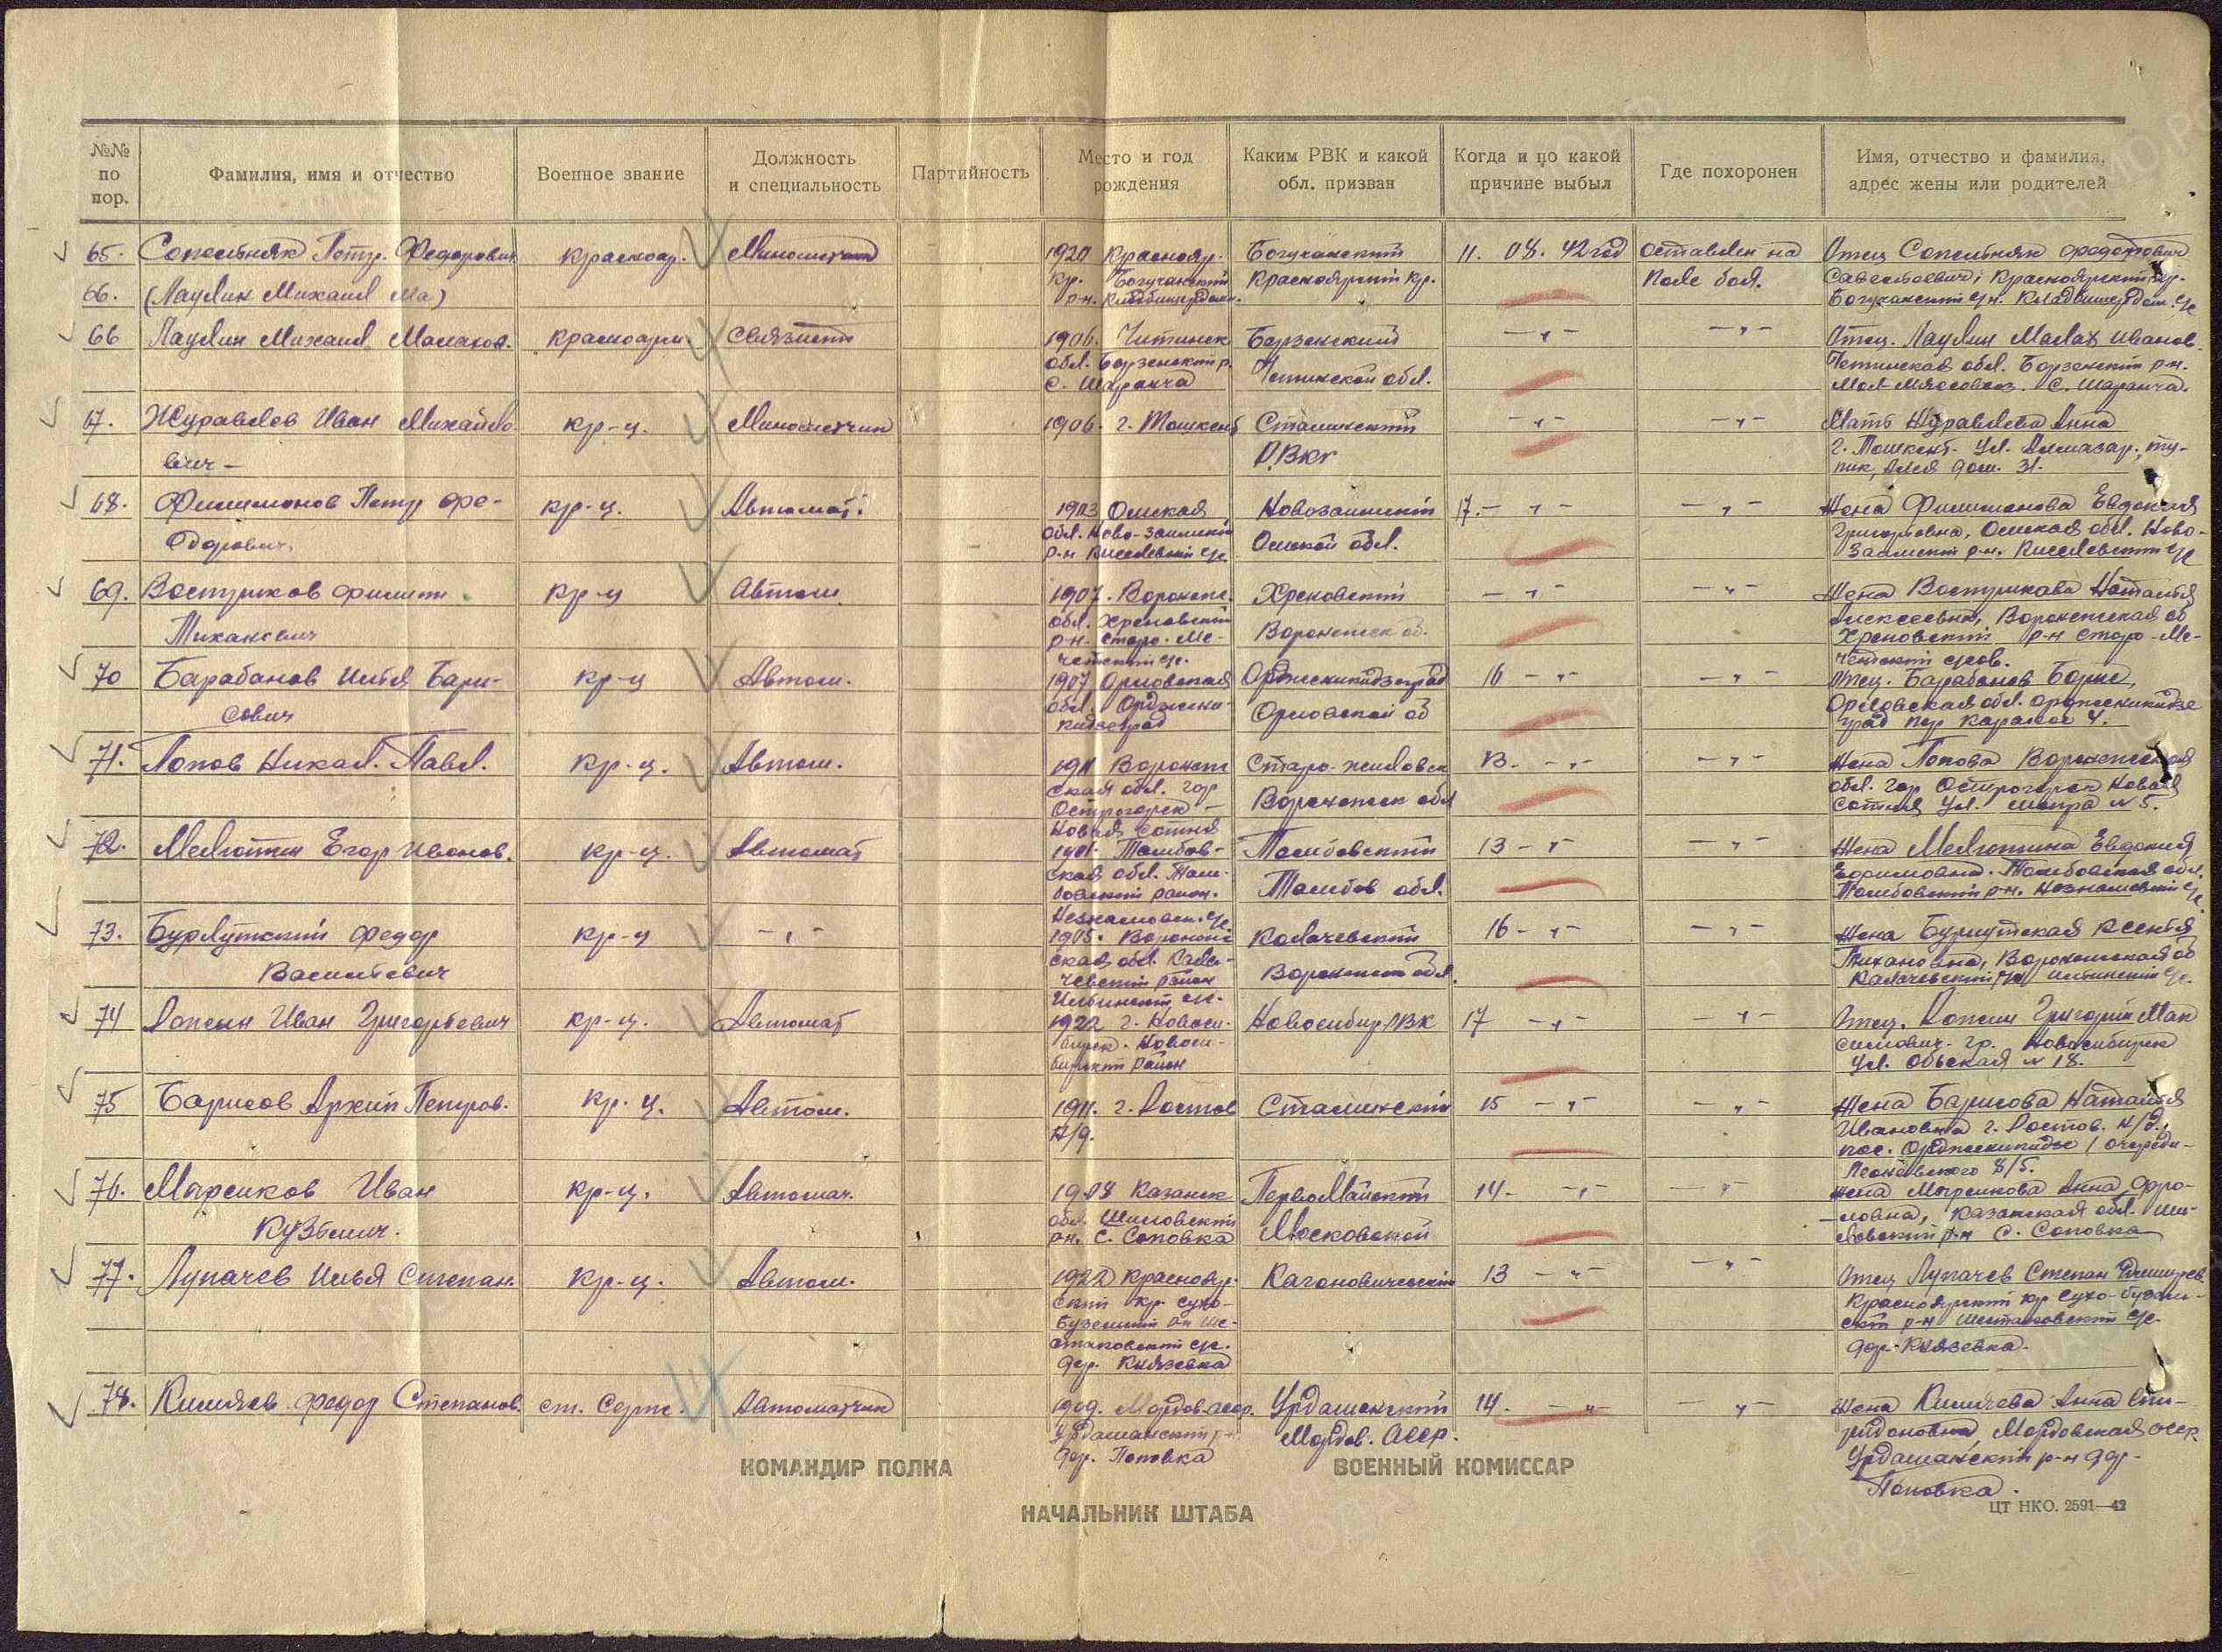 №№ по пор.
Фамилия, имя и отчество
Военное звание
Должность и специальность
Партийность
Место и год рождения
Каким РВК и какой обл. призван
Когда и по какой причине выбыл
Где похоронен
Имя, отчество и фамилия, адрес жены или родителей
65. Петр Федорович красноар. Минометчик 1920 Краснояр. Богучанский 11. 08. 42 год оставлен на Отец
кр. Богучанский Красноярский кр. поле боя. Красноярский кр.
66. (Лаулин Михаил Ма) р-н. Богучанский р-н.
66 Лаулин Михаил Малахов. красноарм. связист 1906. Читинск Борзенский — „ — — „ — Отец. Лаулин Малах Иванов.
обл. Борзенский р. Читинской обл. Читинская обл. Борзенский р-н.
с. Шаранча Мол Мясосовхоз. с. Шаранча.
67. Журавлев Иван Михайло кр-ц. Минометчик 1906. г. Ташкент Сталинский — „ — — „ — Мать Журавлева Анна
вич — РВК г. Ташкент. ул. Алмазар. ту-
пик, дом. 31.
68. Филимонов Петр Фе- кр-ц. Автомат. 1903 Омская Новозаимский 17. — „ — — „ — Жена Филимонова Евдокия
одорович. обл. Ново-Заимский Омской обл. Григорьевна, Омская обл. Ново-
р-н Киселевский с/с Заимский р-н. Киселевский с/с
69. Востриков Филипп кр-ц Автом. 1907. Воронеж. Хреновский — „ — — „ — Жена Вострикова Наталья
Тиханович обл. Хреновский Воронежск об. Алексеевна, Воронежская об
р-н. Старо-Ме- Хреновский р-н Старо-Ме-
четский с/с. четский с/сов.
70 Барабанов Илья Бори- кр-ц Автом. 1907 Орловская Орджоникидзеград 16 — „ — — „ — Отец. Барабанов Борис,
сович обл. Орджони- Орловской об Орловская обл. Орджоникидзе
кидзеград град пер 4.
71. Попов Никол. Павл. кр-ц. Автом. 1911 Воронеж Старо- 13. — „ — — „ — Жена Попова Воронежская
ская обл. гор Воронежск обл обл. гор Острогорск Новая
Острогорск — Сотня ул. № 5.
Новая Сотня
72. Мелютин Егор Иванов. кр-ц. Автомат 1901. Тамбов- Тамбовский 13 — „ — — „ — Жена Мелютина Евдокия
ская обл. Там- Тамбов обл. Ефимовна. Тамбовская обл,
бовский район. Тамбовский р-н.
73. Бурлуцкий Федор кр-ц — „ — 1905. Воронеж Калачевский 16 — „ — — „ — Жена Бурлуцкая Ксенья
Васильевич ская обл. Кала- Воронежской обл. Тихановна, Воронежская об
чевский район Калачевский р-н
74 Иван Григорьевич кр-ц. Автомат 1922 г. Новоси- Новосибир РВК 17 — „ — — „ — Отец. Григорий Мак
бирск. Новоси- симович. гр. Новосибирск
бирский район ул. Обская № 18.
75 Борисов Архип Петров. кр-ц. Автом. 1911. г. Ростов Сталинский 15 — „ — — „ — Жена Борисова Наталья
н/д. Ивановна г. Ростов. н/д.,
пос. Орджоникидзе 1 очереди-
8/5.
76. Мырсиков Иван кр-ц. Автомат. 1908 Казанск Первомайский 14. — „ — — „ — Жена Мырсикова Анна Фро-
Кузьмич. обл. Московской -ловна, Казанская обл.
рн. с. Соповка р-н с. Соповка
77. Лупачев Илья Степан. кр-ц. Автом. 1922 Краснояр. Кагановический 13 — „ — — „ — Отец Лупачев Степан
ский кр. Сухо- Красноярский кр Сухо-бузим-
Бузимский р-н Ше- ский р-н Шестаковский с/с
стаковский с/с. дер. Князевка.
дер. Князевка
78. Федор Степанов. ст. Серж. Автоматчик 1909. Мордов. асср. 14. — „ — — „ — Жена Анна Спи-
Мордов. АССР. ридоновна, Мордовская асср
дер. Поповка р-н дер-
Поповка.
КОМАНДИР ПОЛКА
ВОЕННЫЙ КОМИССАР
НАЧАЛЬНИК ШТАБА
ЦТ НКО. 2591—42